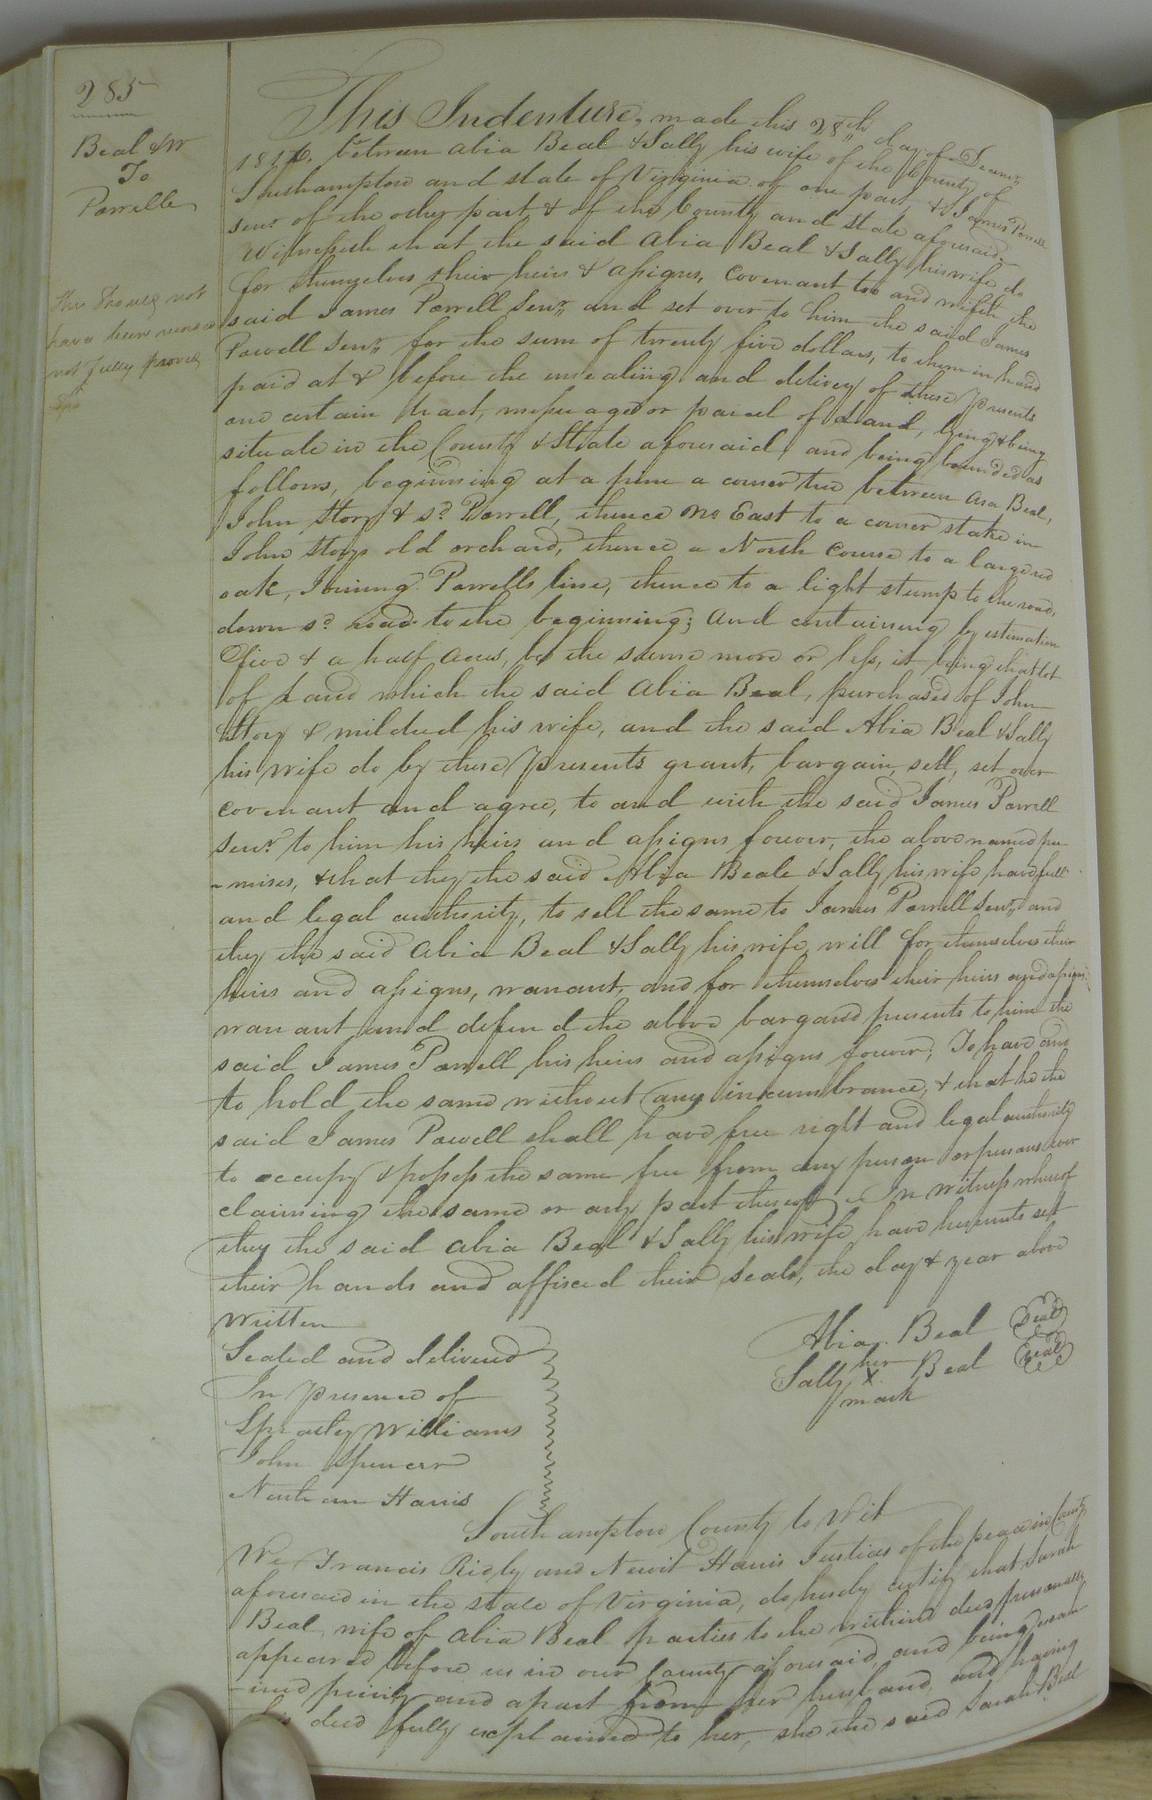 285
Beal & W
To
Powell
This Should not
have been recorded
not fully proved
This Indenture, made this 28th day of Decemr.
1816. between Abia Beal & Sally his wife of the County of
Southampton and state of Virginia of one part, & James Powell
senr. of the other part & of the County and State aforesaid,
Witnesseth that the said Abia Beal & Sally his wife do
for themselves their heirs & assigns, Covenant too and with the
said James Powell Senr. and set over to him the said James
Powell Senr. for the sum of twenty five dollars, to them in hand
paid at & before the ensealing and delivery of these presents
one certain tract, messuage or parcel of Land, lying & being
situate in the County & State aforesaid, and being bounded as
follows, beginning at a pine a corner tree between Asa Beal,
John Story & sd. Powell, thence No East to a corner stake in
John Storys old orchard, thence a North Course to a large red
oak, Joining Powells line, thence to a light stump to the road,
down sd. road to the beginning; And containing by estimation
five & a half acres, be the same more or less, it being that lot
of Land which the said Abia Beal, purchased of John
Story & mildred his wife, and the said Abia Beal & Sally
his wife do by these presents grant, bargain, sell, set over
covenant and agree, to and with the said James Powell
senr. to him his heirs and assigns forever, the above named pre
-mises, & that they the said Abia Beale & Sally his wife have full
and legal authority, to sell the same to James Powell Senr. and
they the said Abia Beal & Sally his wife will for themselves their
heirs and assigns, warrant, and for themselves their heirs and assigns
warrant and defend the above bargand presents to him the
said James Powell his heirs and assigns forever; To have and
to hold the same without any incumbrance, & that he the
said James Powell shall have free right and legal authority
to occupy & possess the same free from any person or persons ever
claiming the same or any part thereof. In Witness whereof
they the said Abia Beal & Sally his wife have hereunto set
their hands and affixed their seals, the day & year above
written
Abia Beal Seal
her
Sally X Beal Seal
mark
Sealed and delivered
In presence of
Spratley Williams
John Spencer
Newton Harris
Southampton County to Wit
We Francis Ridly and Newit Harris Justices of the peace in County
aforesaid in the state of Virginia, do hereby certify that Sarah
Beal, wife of Abia Beal parties to the within deed personally
appeared before us in our County aforesaid, and being exam
-ined privily and apart from her husband, and having
this deed fully explained to her, she the said Sarah Beal